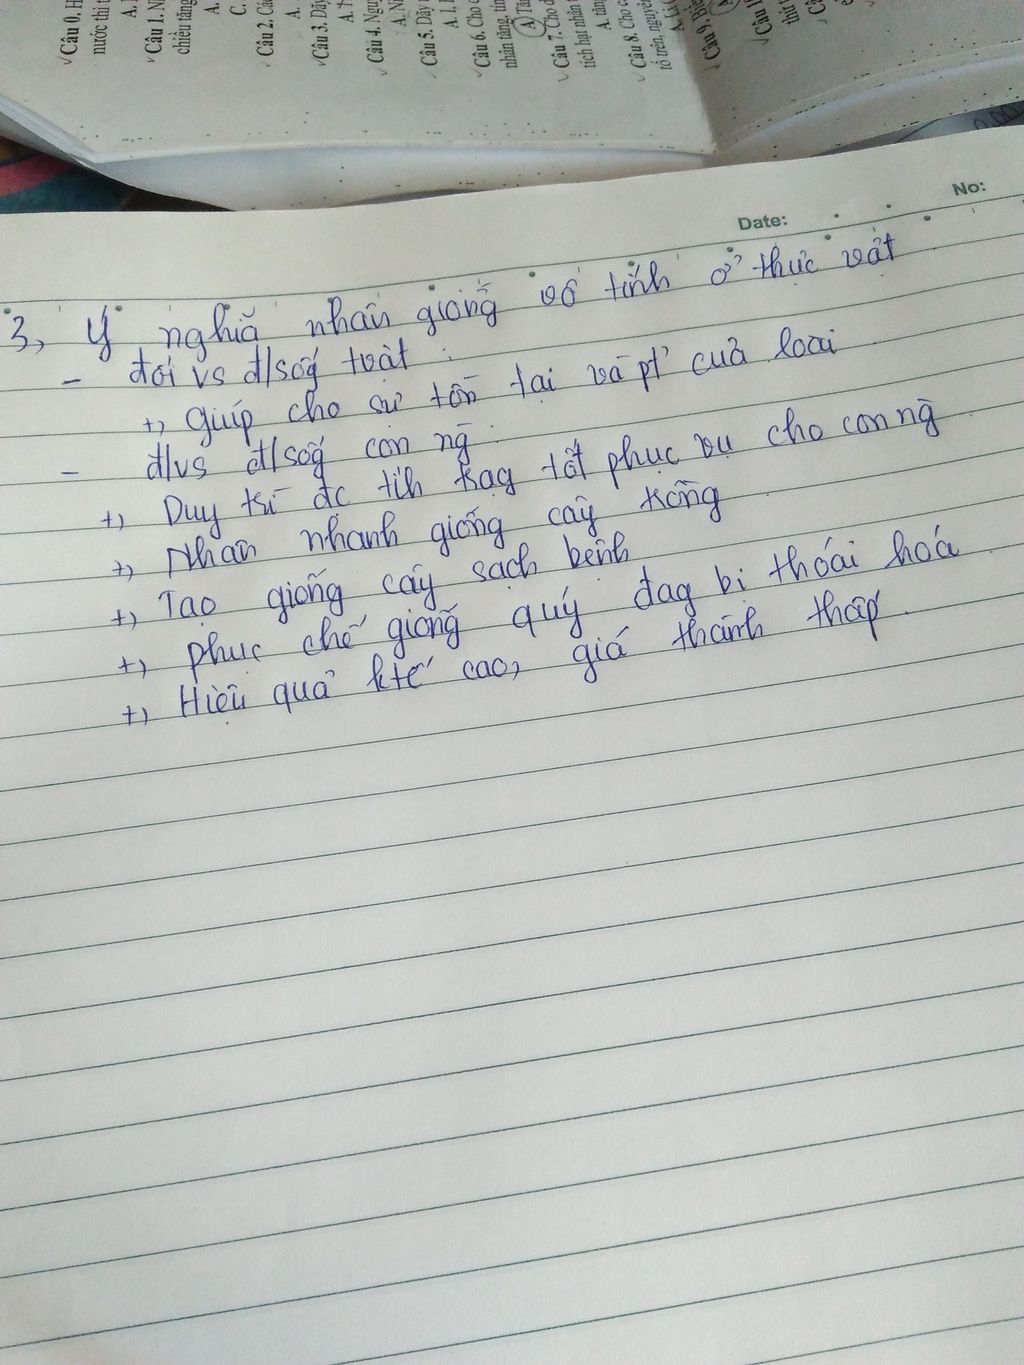 Câu 0. H
nước thì t
A. I
Câu 1. N
chiều tăng
A.
C.
Câu 2. Các
A.
Câu 3. Dãy
A.
Câu 4. Nguy
A. Ni
Câu 5. Dãy
A. I
Câu 6. Cho
nhân tăng, tín
A Tăn
Câu 7. Cho d
tích hạt nhân t
A. tăn
Câu 8. Cho c
tố trên, nguyên
Câu 9. Biế
Date:
No:
3, Ý nghĩa nhân giống vô tính ở thực vật
- đối vs đ/sốg tvật :
+, Giúp cho sự tồn tại và pt' của loài
- đ/vs đ/sốg con ng̀ :
+, Duy trì đc tíh trạg tốt phục vụ cho con ng̀
+, Nhân nhanh giống cây trồng
+, Tạo giống cây sạch bệnh
+, phục chế giống quý đag bị thoái hoá
+, Hiệu quả ktế cao, giá thành thấp.